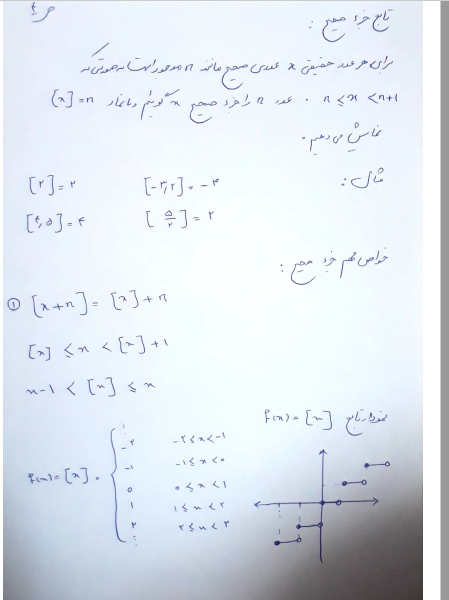 ص ۴
تابع جزء صحیح :
برای هر عدد حقیقی x عددی صحیح مانند n موجود است به صورتی که
n ≤ x < n+1 . عدد n را جزء صحیح x گوئیم و با نماد [x] = n
نمایش می دهیم .
مثال :
[۲] = ۲ [-۳,۲] = -۴
[۴,۵] = ۴ [۵/۲] = ۲
خواص مهم جزء صحیح :
① [x+n] = [x]+n
[x] ≤ x < [x]+۱
x-۱ < [x] ≤ x
نمودار تابع f(x) = [x]
f(x) = [x] =
⋮
-۲ -۲ ≤ x < -۱
-۱ -۱ ≤ x < ۰
۰ ۰ ≤ x < ۱
۱ ۱ ≤ x < ۲
۲ ۲ ≤ x < ۳
⋮